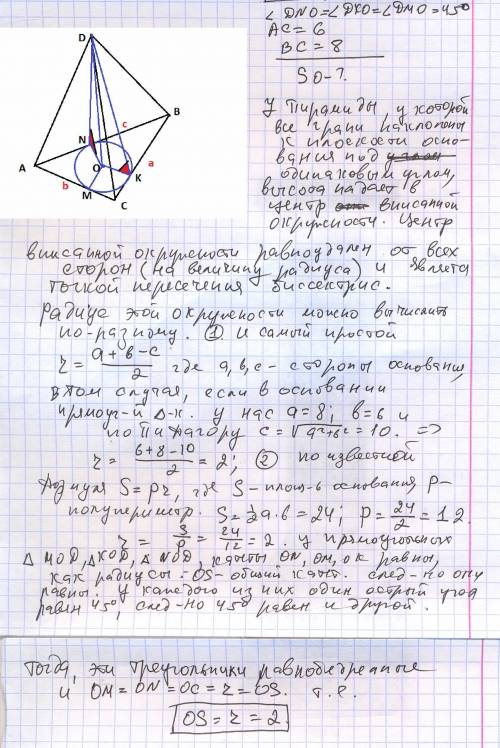 ∠DNO=∠DKO=∠DMO=45°
AC=6
BC=8
SO-?
D
B
N
c
A
O
a
K
b
M
C
У пирамиды у которой
все грани наклонены
к плоскости осно-
вания под
одинаковым углом,
высота падает в
центр вписанной
окружности. Центр
вписанной окружности равноудален от всех
сторон (на величину радиуса) и является
точкой пересечения биссектрис.
Радиус этой окружности можно вычислить
по-разному. ① и самый простой
r = (a+b-c)/2 где a, b, c - стороны основания,
в том случае, если в основании
прямоуг-й Δ-к. У нас a=8; b=6 и
по Пифагору c=√(a²+b²)=10. =>
r = (6+8-10)/2 = 2; ② по известной
формуле S=pr, где S-площ-ь основания p-
полупериметр. S=½a·b=24; P=24/2=12.
r = S/p = 24/12 = 2. У прямоугольных
Δ MOD, ΔKOD, Δ NOD, катеты ON, OM, OK равны,
как радиусы. OS-общий кат. след-но они
равны. У каждого из них один острый угол
равен 45°, след-но 45° равен и другой.
Тогда, эти треугольники равнобедренные
и OM=ON=OC=r=OS. т.е.
OS=r=2.